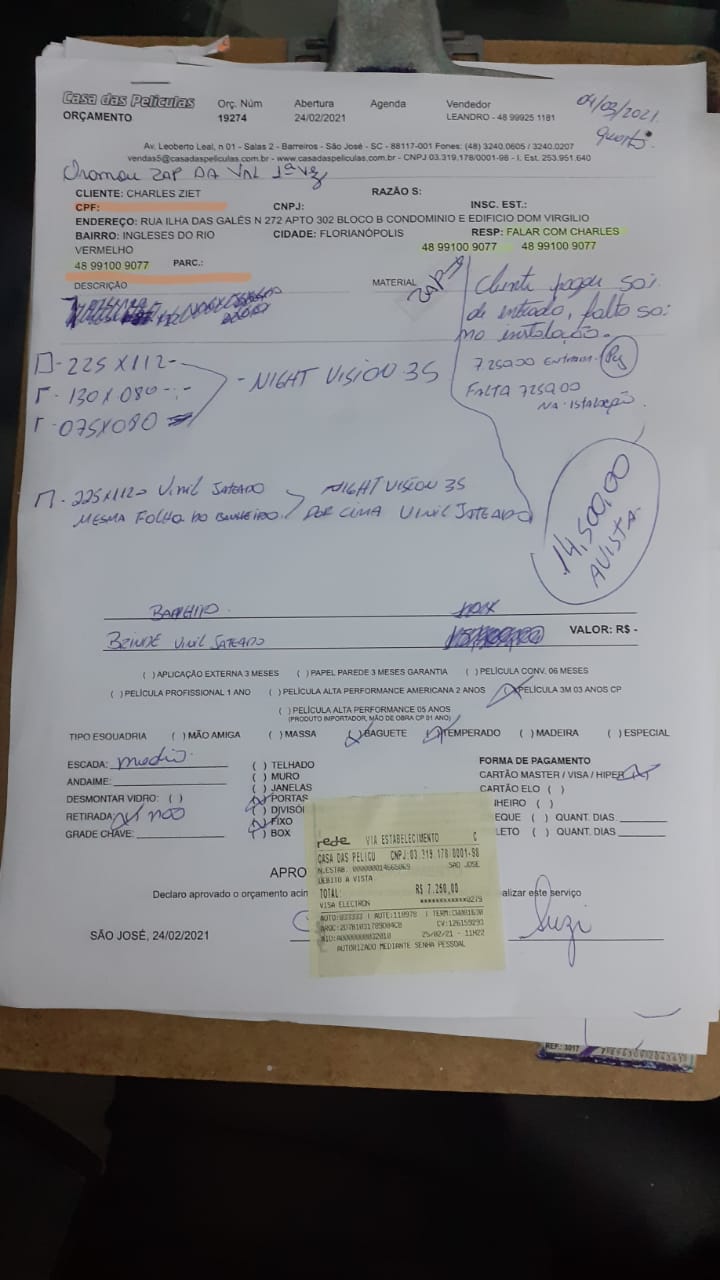 Casa das Películas
ORÇAMENTO
Orç. Núm Abertura Agenda Vendedor
19274 24/02/2021 LEANDRO - 48 99925 1181
04/03/2021
Av. Leoberto Leal, n 01 - Salas 2 - Barreiros - São José - SC - 88117-001 Fones: (48) 3240.0605 / 3240.0207
vendas5@casadaspeliculas.com.br - www.casadaspeliculas.com.br - CNPJ 03.319.178/0001-98 - I. Est. 253.951.640
Chamou ZAP DA VAL 1ª vez
CLIENTE: CHARLES ZIET RAZÃO S:
CPF: CNPJ: INSC. EST.:
ENDEREÇO: RUA ILHA DAS GALÉS N 272 APTO 302 BLOCO B CONDOMINIO E EDIFICIO DOM VIRGILIO
BAIRRO: INGLESES DO RIO VERMELHO CIDADE: FLORIANÓPOLIS RESP: FALAR COM CHARLES
48 99100 9077 48 99100 9077
48 99100 9077 PARC.:
DESCRIÇÃO MATERIAL
Cliente pagou 50%
de entrada, falta 50%
na instalação.
7250,00 Entrada.
FALTA 7250,00
NA
225 X 112 -
130 X 080
075X080
- NIGHT VISION 35
14.500,00
AVISTA
225X112 Vinil JATEADO NIGHT VISION 35
MESMA FOLHA DO BANHEIRO. POR CIMA VINIL JATEADO
10X
BRINDE VINIL JATEADO VALOR: R$ -
( ) APLICAÇÃO EXTERNA 3 MESES ( ) PAPEL PAREDE 3 MESES GARANTIA ( ) PELÍCULA CONV. 06 MESES
( ) PELÍCULA PROFISSIONAL 1 ANO ( ) PELÍCULA ALTA PERFORMANCE AMERICANA 2 ANOS (X) PELÍCULA 3M 03 ANOS CP
( ) PELÍCULA ALTA PERFORMANCE 05 ANOS
(PRODUTO IMPORTADOR, MÃO DE OBRA CP 01 ANO)
TIPO ESQUADRIA ( ) MÃO AMIGA ( ) MASSA (X) BAGUETE (X) TEMPERADO ( ) MADEIRA ( ) ESPECIAL
ESCADA: medio ( ) TELHADO FORMA DE PAGAMENTO
ANDAIME: ( ) MURO CARTÃO MASTER / VISA / HIPER (X)
( ) JANELAS CARTÃO ELO ( )
DESMONTAR VIDRO: ( ) (X) PORTAS NHEIRO ( )
RETIRADA: (X) não ( ) DIVISÓ EQUE ( ) QUANT. DIAS
(X) FIXO
GRADE CHAVE: (X) BOX LETO ( ) QUANT. DIAS
APRO
Declaro aprovado o orçamento acim alizar este serviço
SÃO JOSÉ, 24/02/2021 Suzi
rede VIA ESTABELECIMENTO C
CASA DAS PELICU CNPJ:03.319.178/0001-98
N.ESTAB. 000000014665069 SAO JOSE
DEBITO A VISTA
TOTAL: R$ 7.250,00
VISA ELECTRON ************0279
AUTO:033333 | AUTE:118978 | TERM:
CV:126159293
25/02/21 - 11H22
AUTORIZADO MEDIANTE SENHA PESSOAL
REF.: 3017